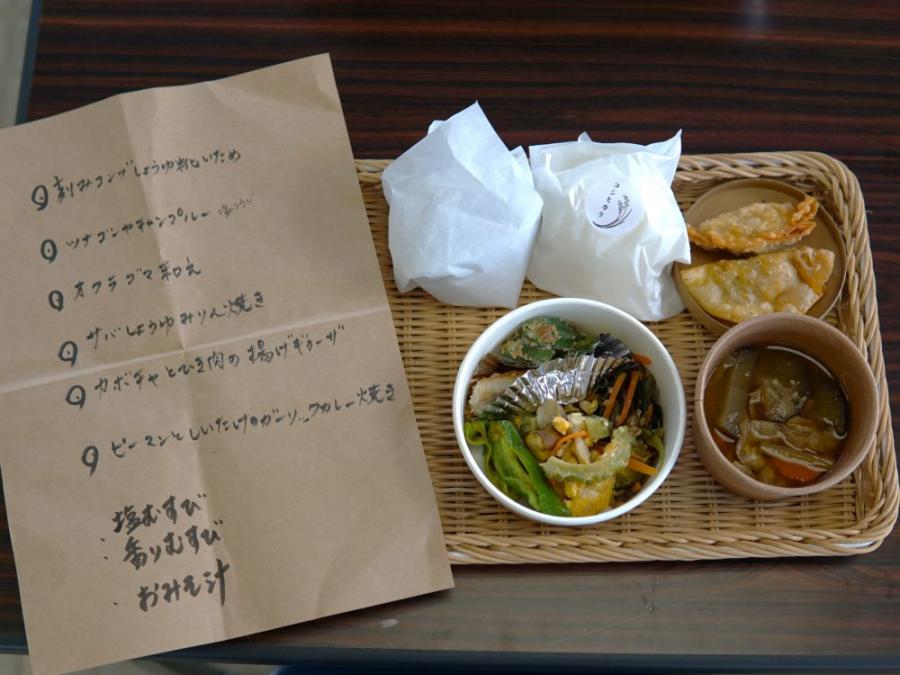 刻みコンブしょうゆ麹いため
ツナゴンヤチャンプルー 塩こうじ
オクラゴマ和え
サバしょうゆみりん焼き
カボチャとひき肉の揚げギョーザ
ピーマンとしいたけのガーリックカレー焼き
塩むすび
・香りむすび
・おみそ汁
コシヒカリ